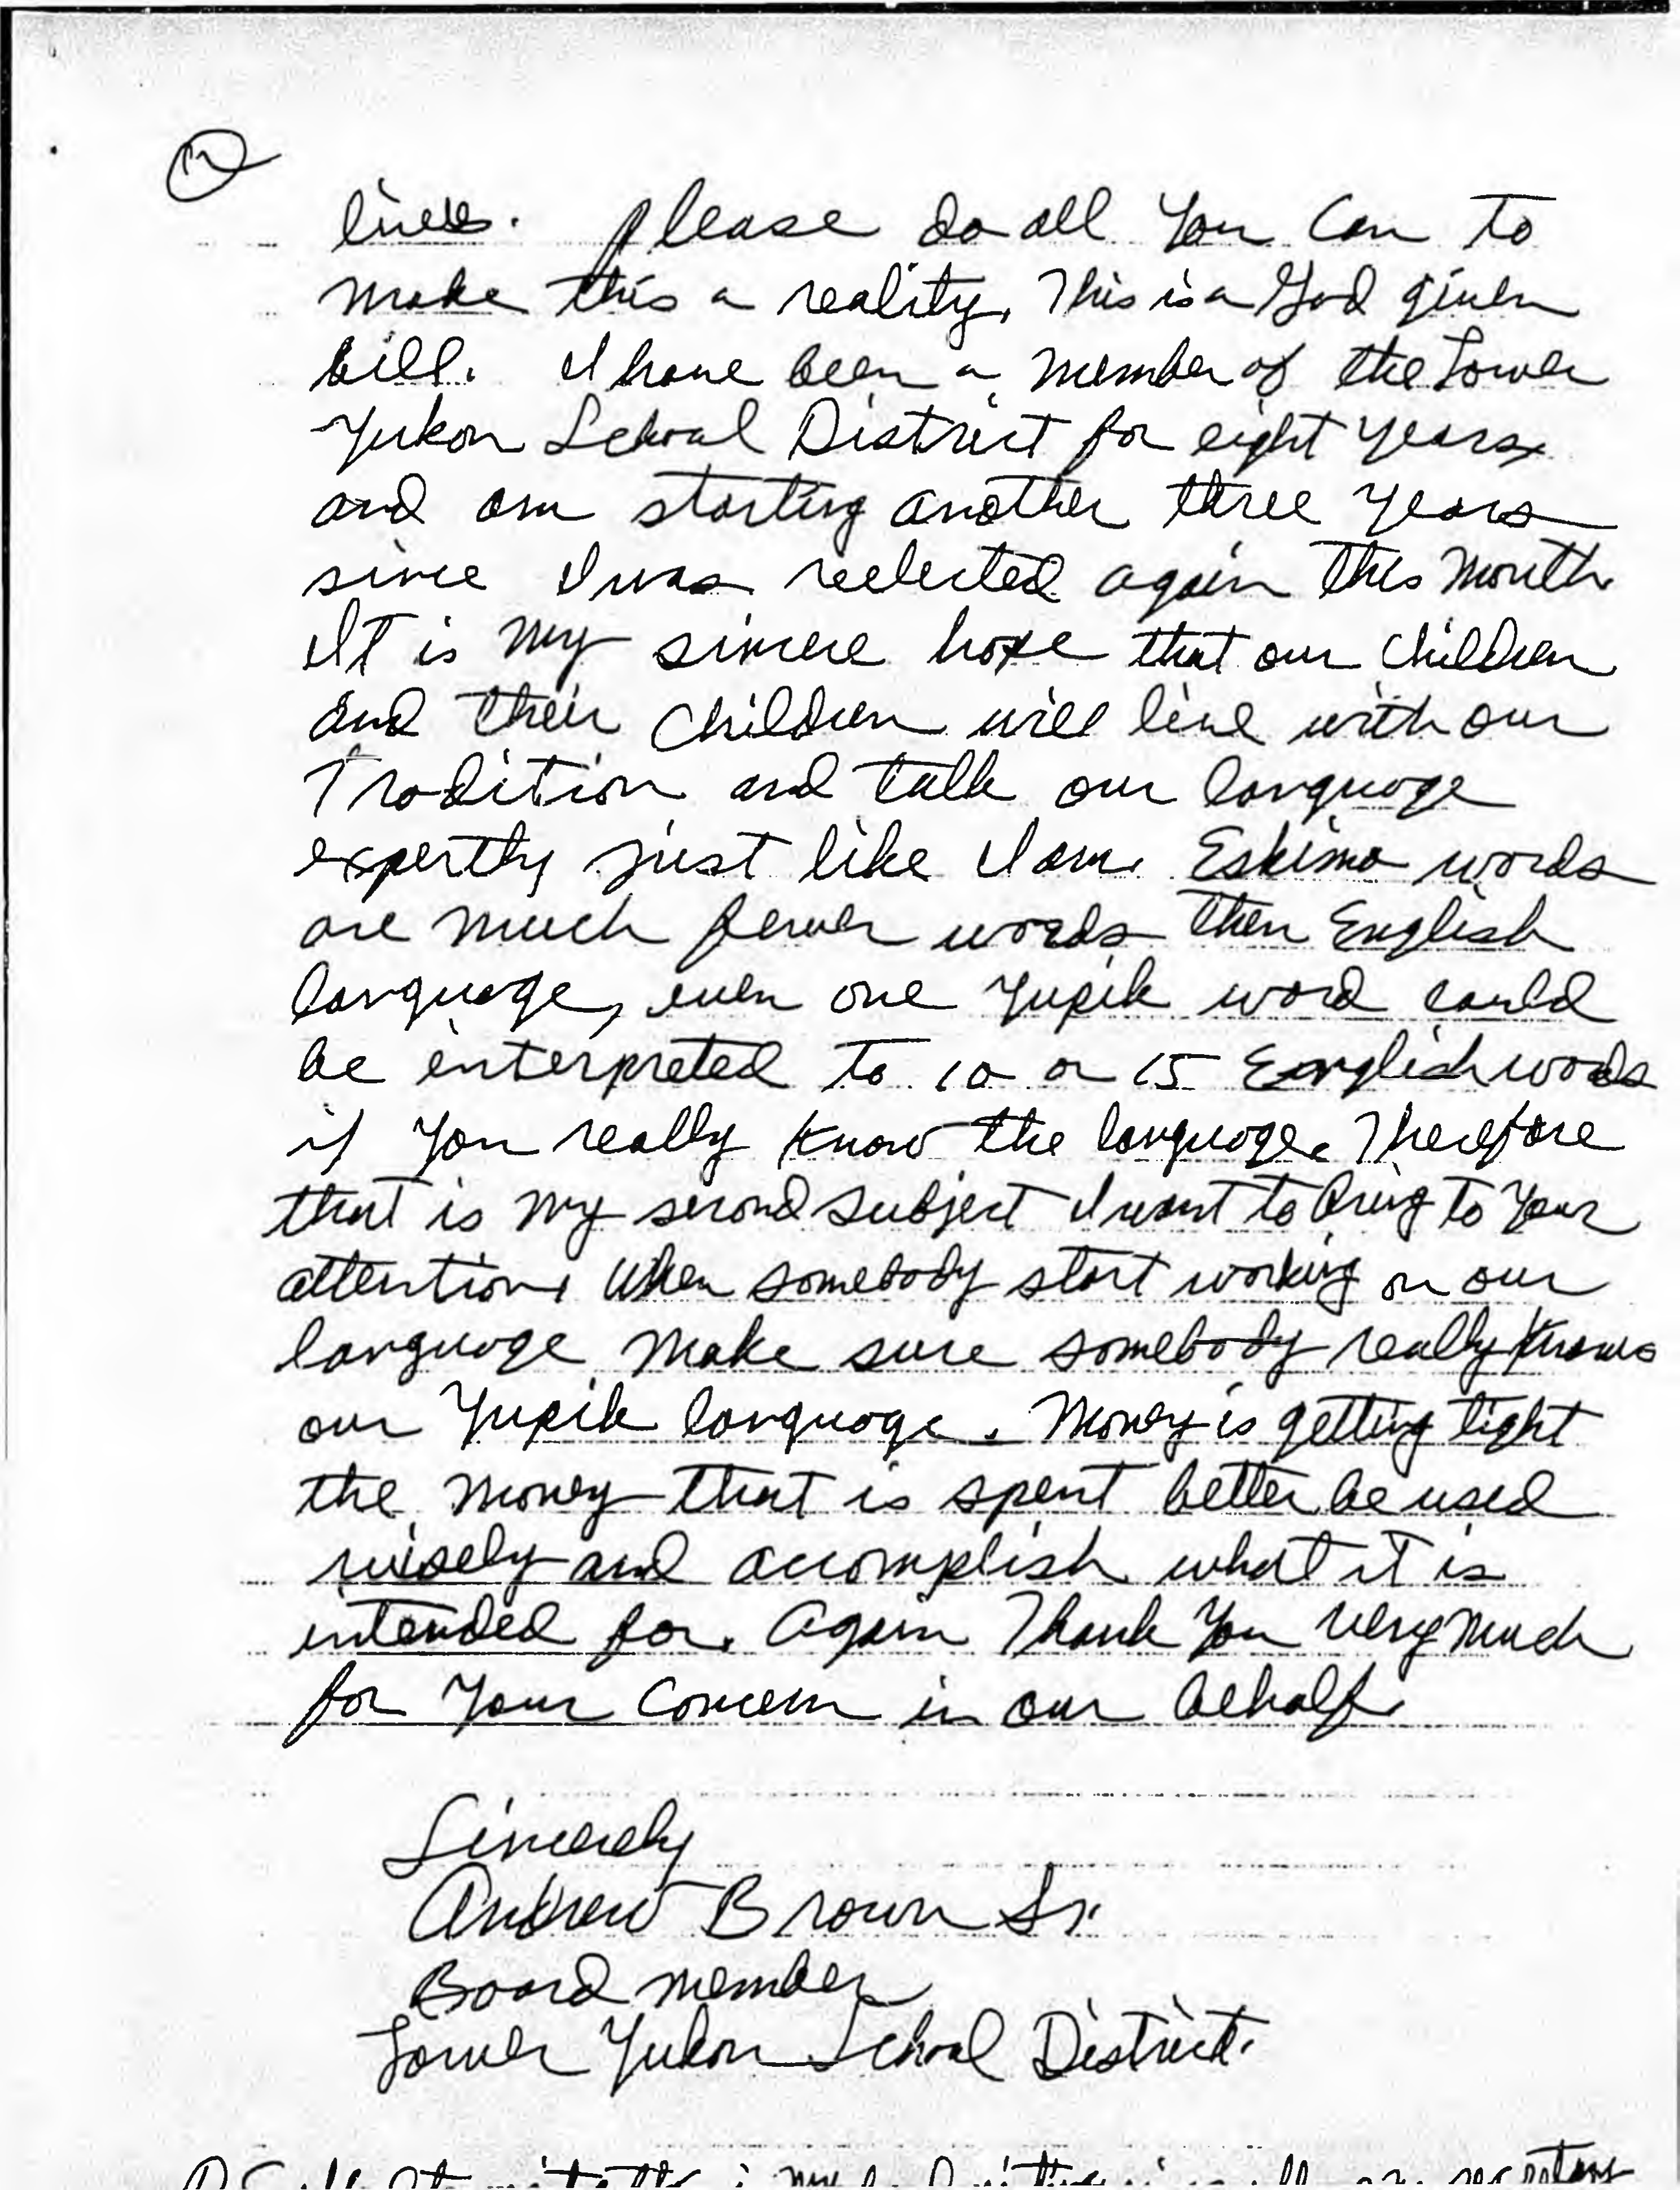 2
lives. please do all you can to
make this a reality, This is a God given
bill. I have been a member of the Lower
Yukon School District for eight years,
and am starting another three years
since I was reelected again this month.
It is my sincere hope that our children
and their children will live with our
Tradition and talk our language
expertly just like I am. Eskimo words
are much fewer words then English
language, even one Yupik word could
be interpreted to 10 or 15 English words
if you really know the language. Therefore
that is my second subject I want to bring to your
attention, when somebody start working on our
language make sure somebody really knows
our Yupik language. Money is getting tight
the money that is spent better be used
wisely and accomplish what it is
intended for. Again Thank You very much
for your concern in our behalf.
Sincerely
Andrew Brown Sr.
Board member
Lower Yukon School District.
my secretary